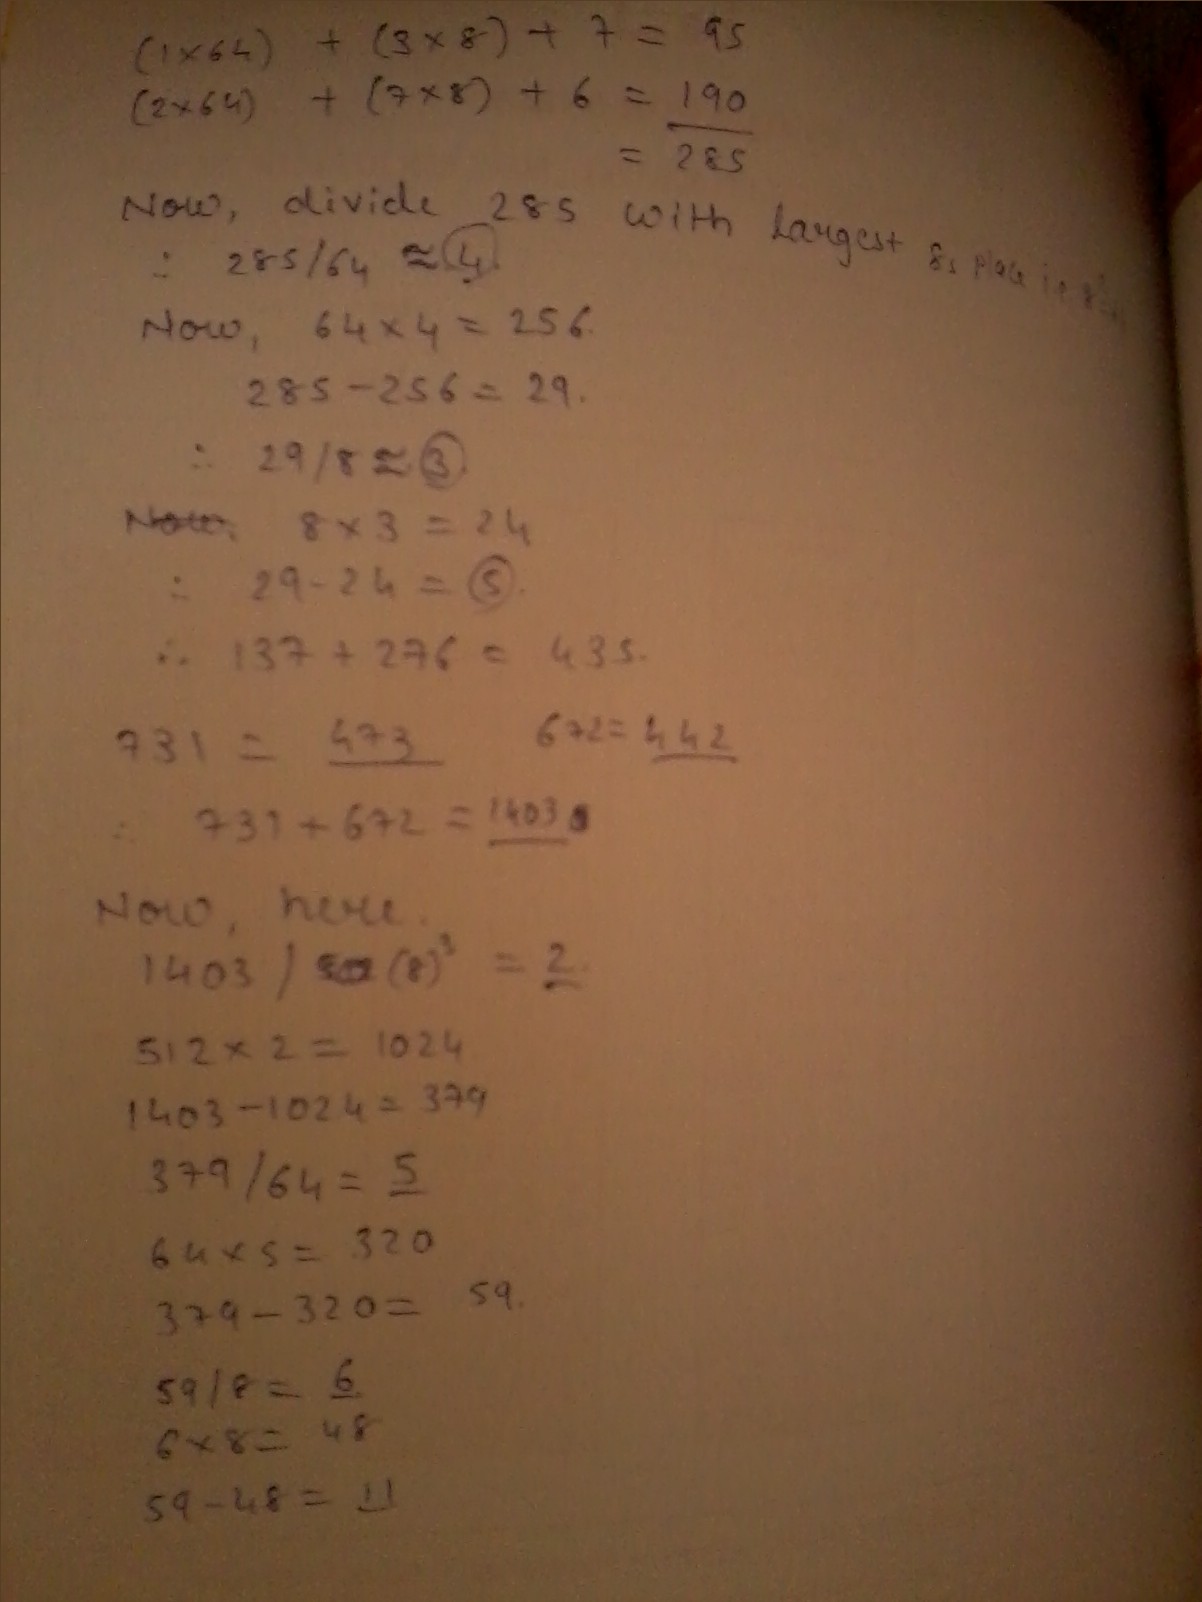 (1×64) + (3×8) + 7 = 95
(2×64) + (7×8) + 6 = 190
= 285
Now, divide 285 with largest 8s place i.e
∴ 285/64 ≈ 4.
Now, 64×4 = 256.
285-256 = 29.
∴ 29/8 ≈ 3.
Now, 8×3 = 24
∴ 29-24 = 5.
∴ 137 + 276 = 435.
731 = 473 672 = 442
∴ 731 + 672 = 1403
Now, here.
1403 / (8)³ = 2.
512 × 2 = 1024
1403 - 1024 = 379
379/64 = 5
64×5 = 320
379 - 320 = 59.
59/8 = 6
6×8 = 48
59-48 = 11